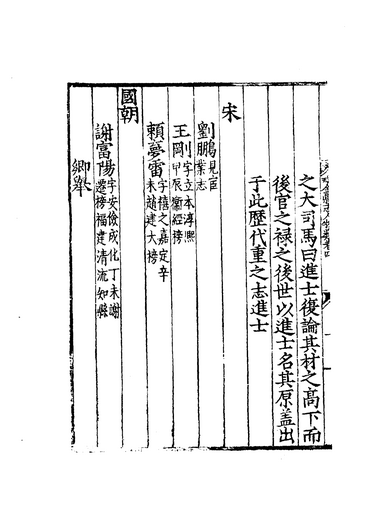 之大司馬曰進士復論其材之高下而
後官之禄之後世以進士名其原盖出
于此歴代重之志進士
宋
劉鵬見宦
業志
王剛字立本淳熙
甲辰衛經榜
賴夢雷字禧之嘉定辛
未趙建大榜
國朝
謝富陽字安儉成化丁未謝
遷榜福建清流知縣
鄉舉